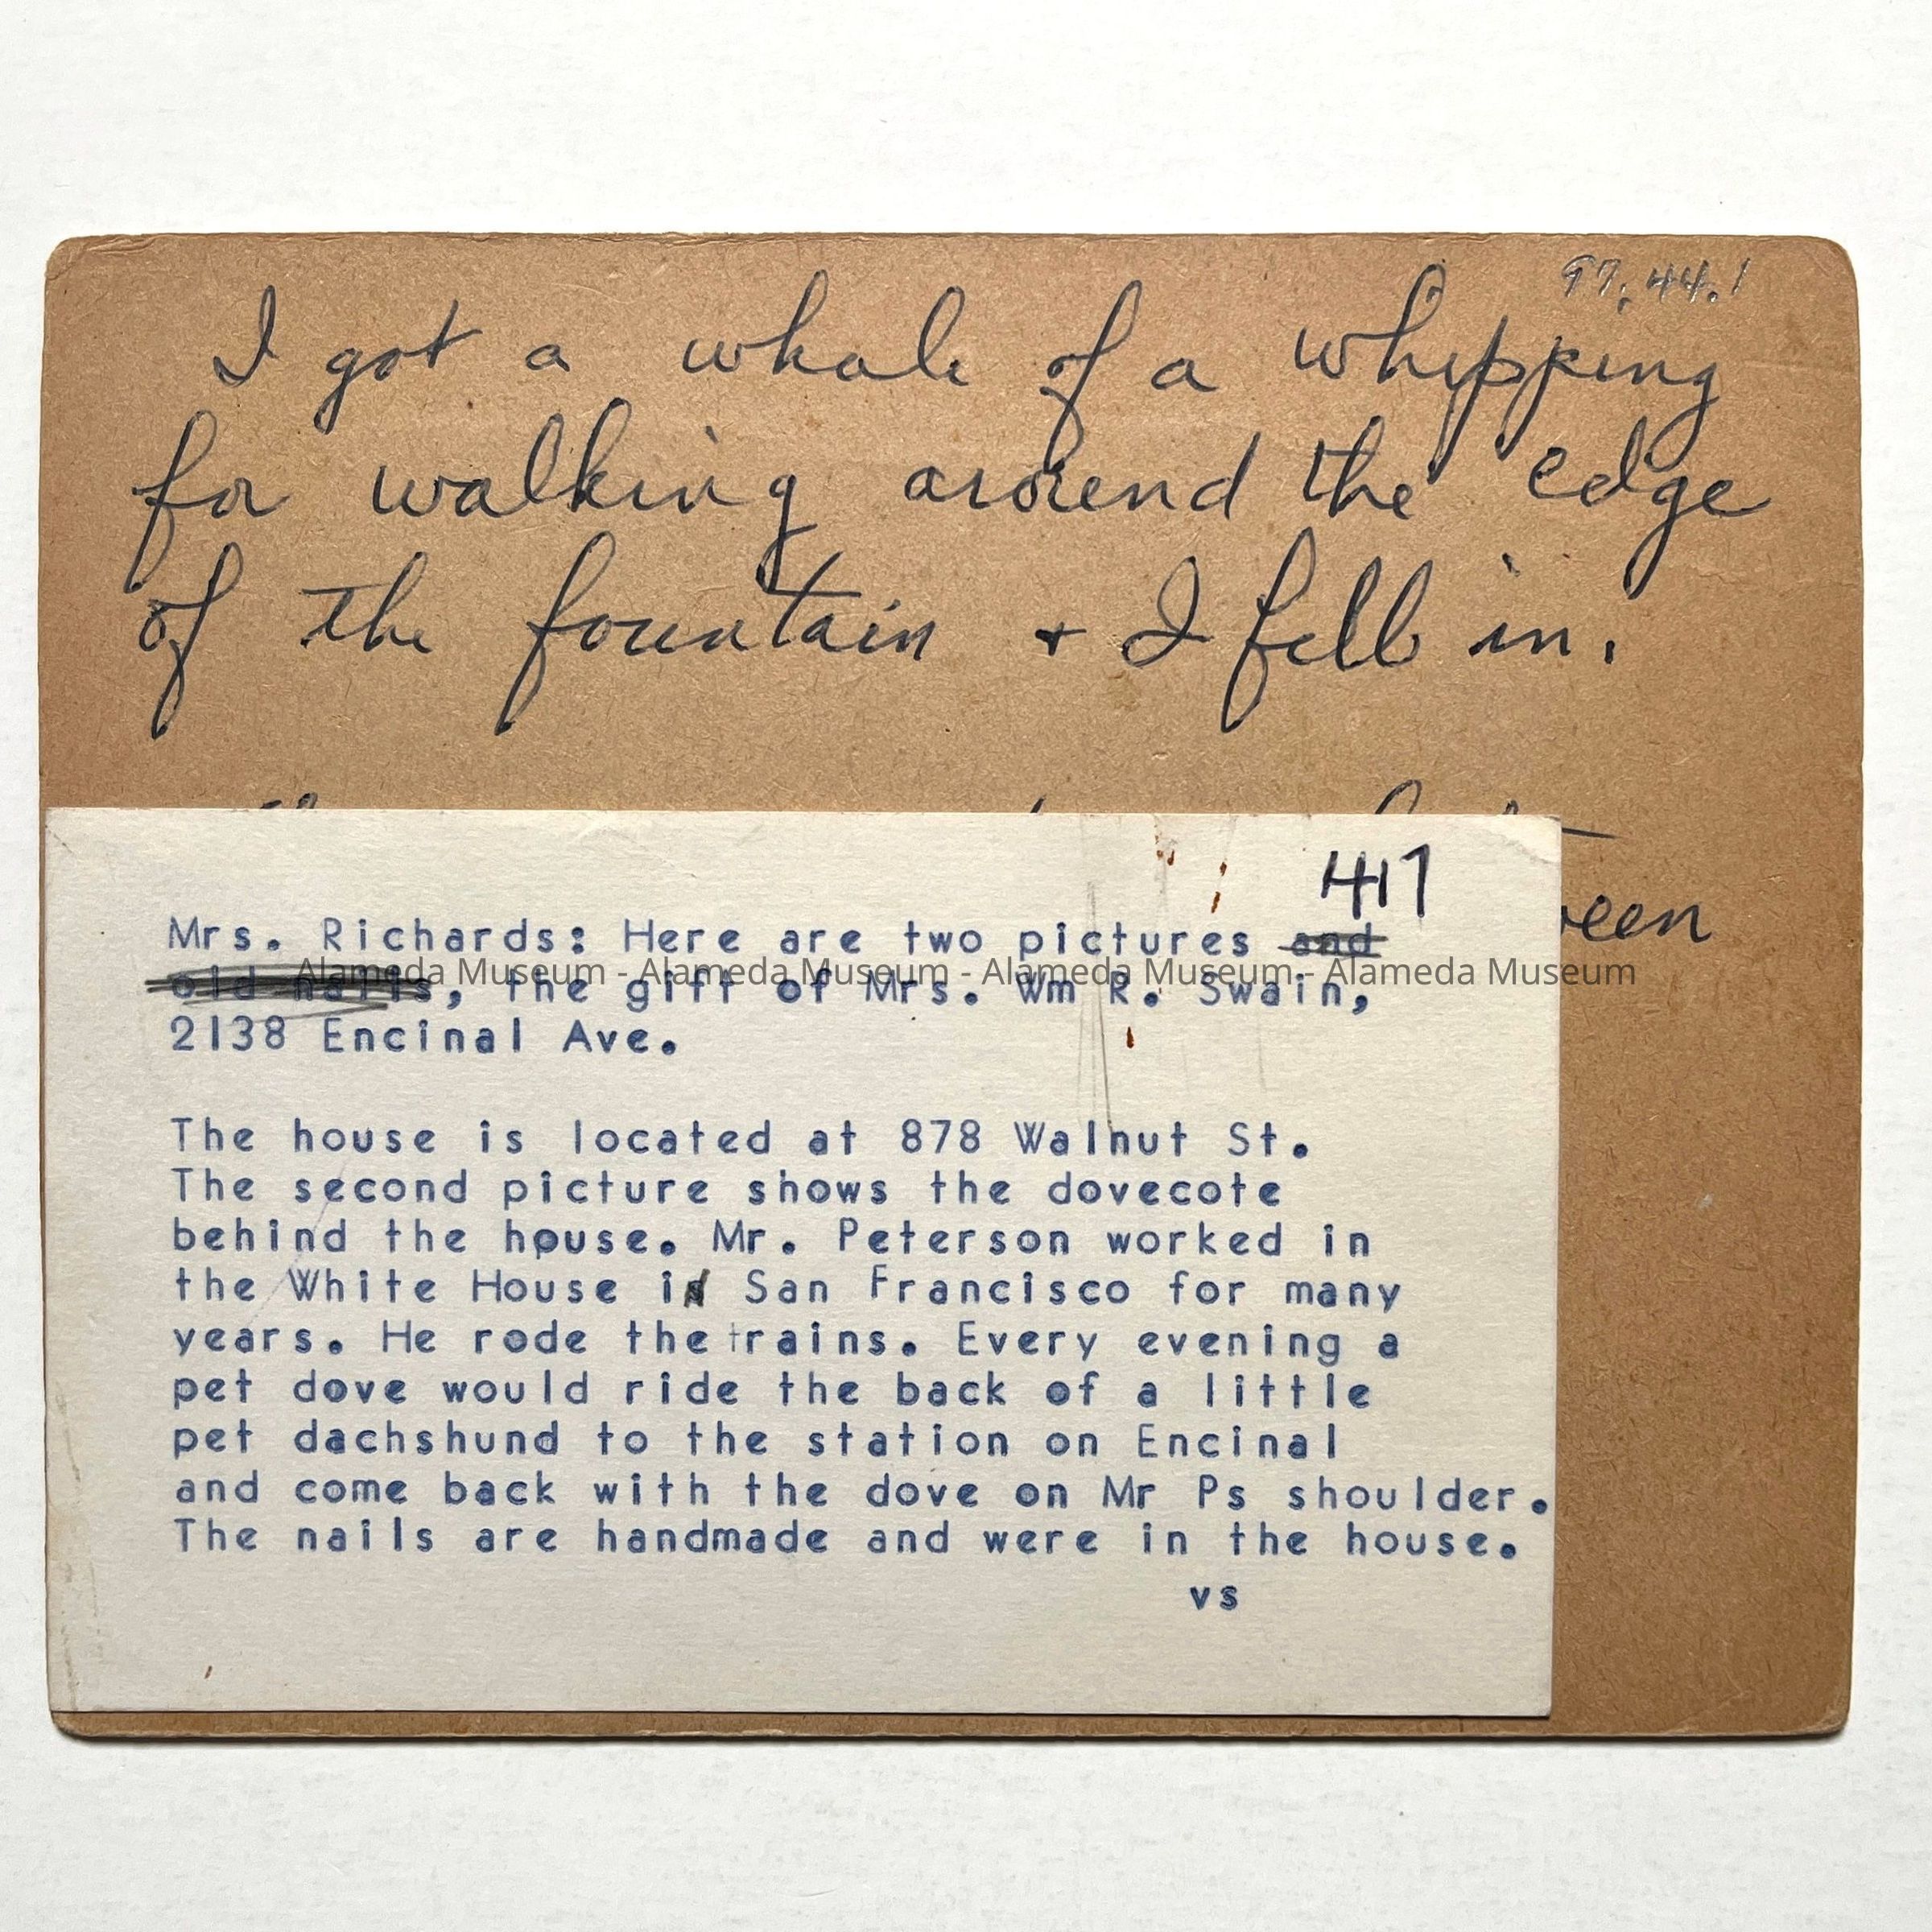 97.44.1
I got a whale of a whipping
for walking around the edge
of the fountain + I fell in.
417
Mrs. Richards: Here are two pictures and
old nails, the gift of Mrs. Wm R. Swain,
Alameda Museum - Alameda Museum - Alameda Museum - Alameda Museum
2138 Encinal Ave.
The house is located at 878 Walnut St.
The second picture shows the dovecote
behind the house. Mr. Peterson worked in
the White House in San Francisco for many
years. He rode the trains. Every evening a
pet dove would ride the back of a little
pet dachshund to the station on Encinal
and come back with the dove on Mr Ps shoulder.
The nails are handmade and were in the house.
vs